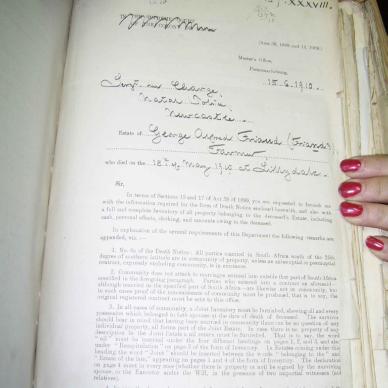 XXXVIII.
Master's Office,
Pietermaritzburg,
15.6.1910.
Sergt. in Charge,
Natal Police,
Newcastle
Estate of George Alfred Friaund (Friand)
Farmer,
who died on the 18th of May 1910 at Lillydale.
Sir,
In terms of Sections 15 and 17 of Act 38 of 1899, you are requested to furnish me
with the information required by the form of Death Notice enclosed herewith, and also with
a full and complete Inventory of all property belonging to the deceased's Estate, including
cash, personal effects, stocking, and amounts owing to the deceased.
In explanation of the several requirements of this Department the following remarks are
appended, viz.:—
1. No. 6a of the Death Notice: All parties married South of the
degree of southern latitude are in community of property, unless an antenuptial or postnuptial
contract, expressly excluding community, is in existence.
2. Community does not attach to marriages entered into outside this part of South Africa
specified in the foregoing paragraph. Parties who entered into a contract as aforesaid—
although married in the specified part of South Africa—are likewise not in community, but
in such cases proof of the non-existence of community must be produced, that is to say, the
original registered contract must be sent to this office.
3. In all cases of community, a Joint Inventory must be furnished, showing all and every
possession which belonged to both spouses at the date of death of the deceased. The survivor
should bear in mind that having been married in community there can be no question of any
individual property, all forms part of the Joint Estate. In case there is no property of any
description in the Joint Estate a nil return must be furnished. That is to say, the word
"nil" must be inserted under the four different headings on pages 1, 2, and 3, and also
under "Recapitulation" on page 3 of the form of Inventory. In Estates coming under this
heading the word "Joint" should be inserted between the words "belonging to the" and
"Estate of the late," appearing on pages 3 and 4 of the form of Inventory. The declaration
on page 4 must in every case (whether there is property or not) be signed by the surviving
spouse, or the Executor under the Will, in the presence of two impartial witnesses (not
relatives).